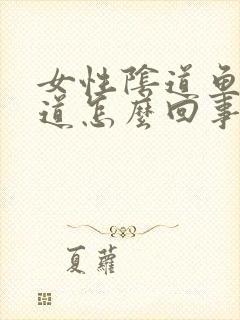 女性陰道魚
道怎麼回事
夏蘿